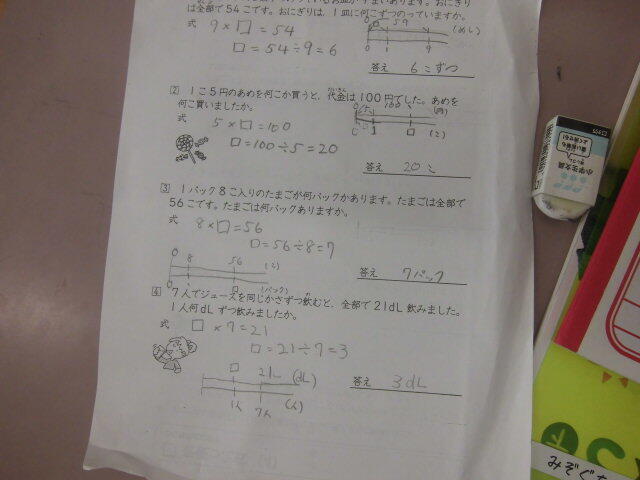 は全部で54こです。おにぎりは、1皿に何こずつのっていますか。
式 9×□=54
□=54÷9=6
答え 6こずつ
0 1 9
⑵ 1こ5円のあめを何こか買うと、代金は100円でした。あめを
何こ買いましたか。
式 5×□=100
□=100÷5=20
0 5 100 (円)
0 1 □ (こ)
答え 20こ
⑶ 1パック8こ入りのたまごが何パックかあります。たまごは全部で
56こです。たまごは何パックありますか。
式 8×□=56
□=56÷8=7
0 8 56 (こ)
0 1 □ (パック)
答え 7パック
⑷ 7人でジュースを同じかさずつ飲むと、全部で21dL飲みました。
1人何dLずつ飲みましたか。
式 □×7=21
□=21÷7=3
□ 21L (dL)
1人 7人 (人)
答え 3dL
小学生文具